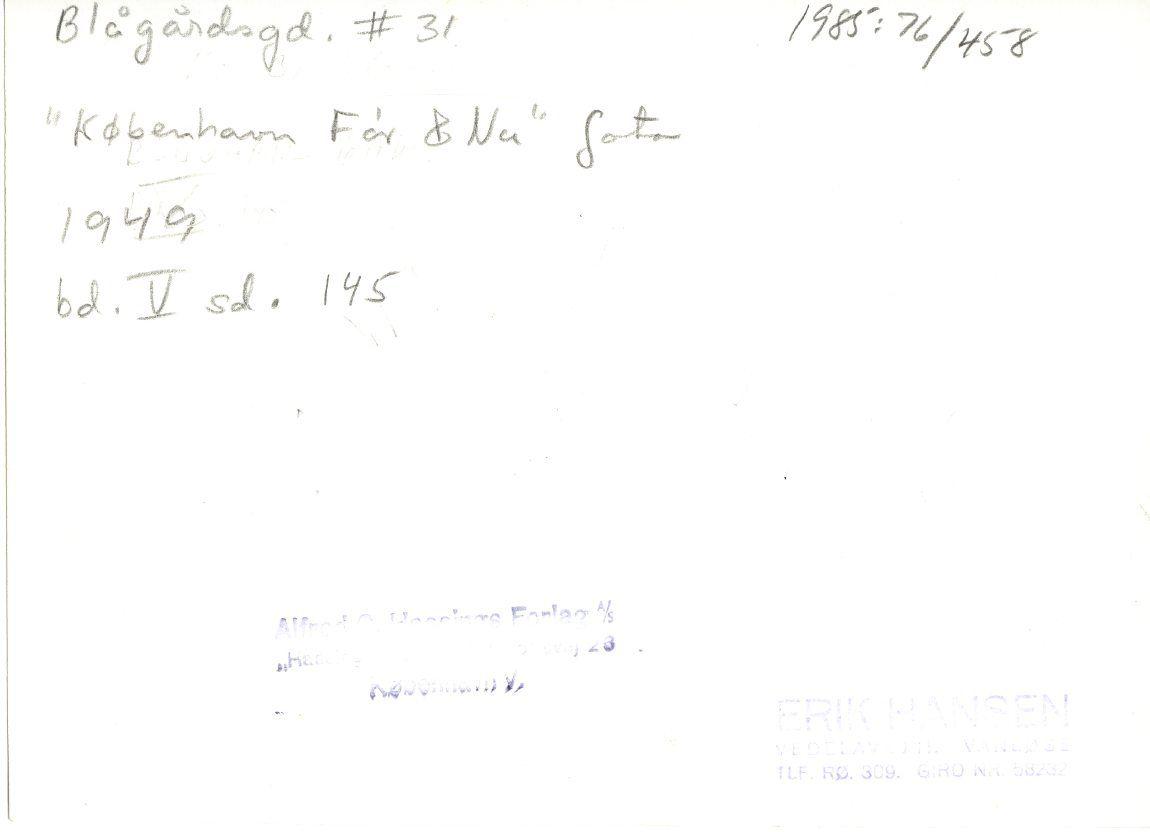 Blågårdsgd. # 31
1985:76/458
"København Før & Nu" foto
1949
bd. V sd. 145
Alfred G. Hassings Forlag A/S
28
København V.
ERIK HANSEN
VANLØSE
TLF. RØ. 309. GIRO NR. 58232